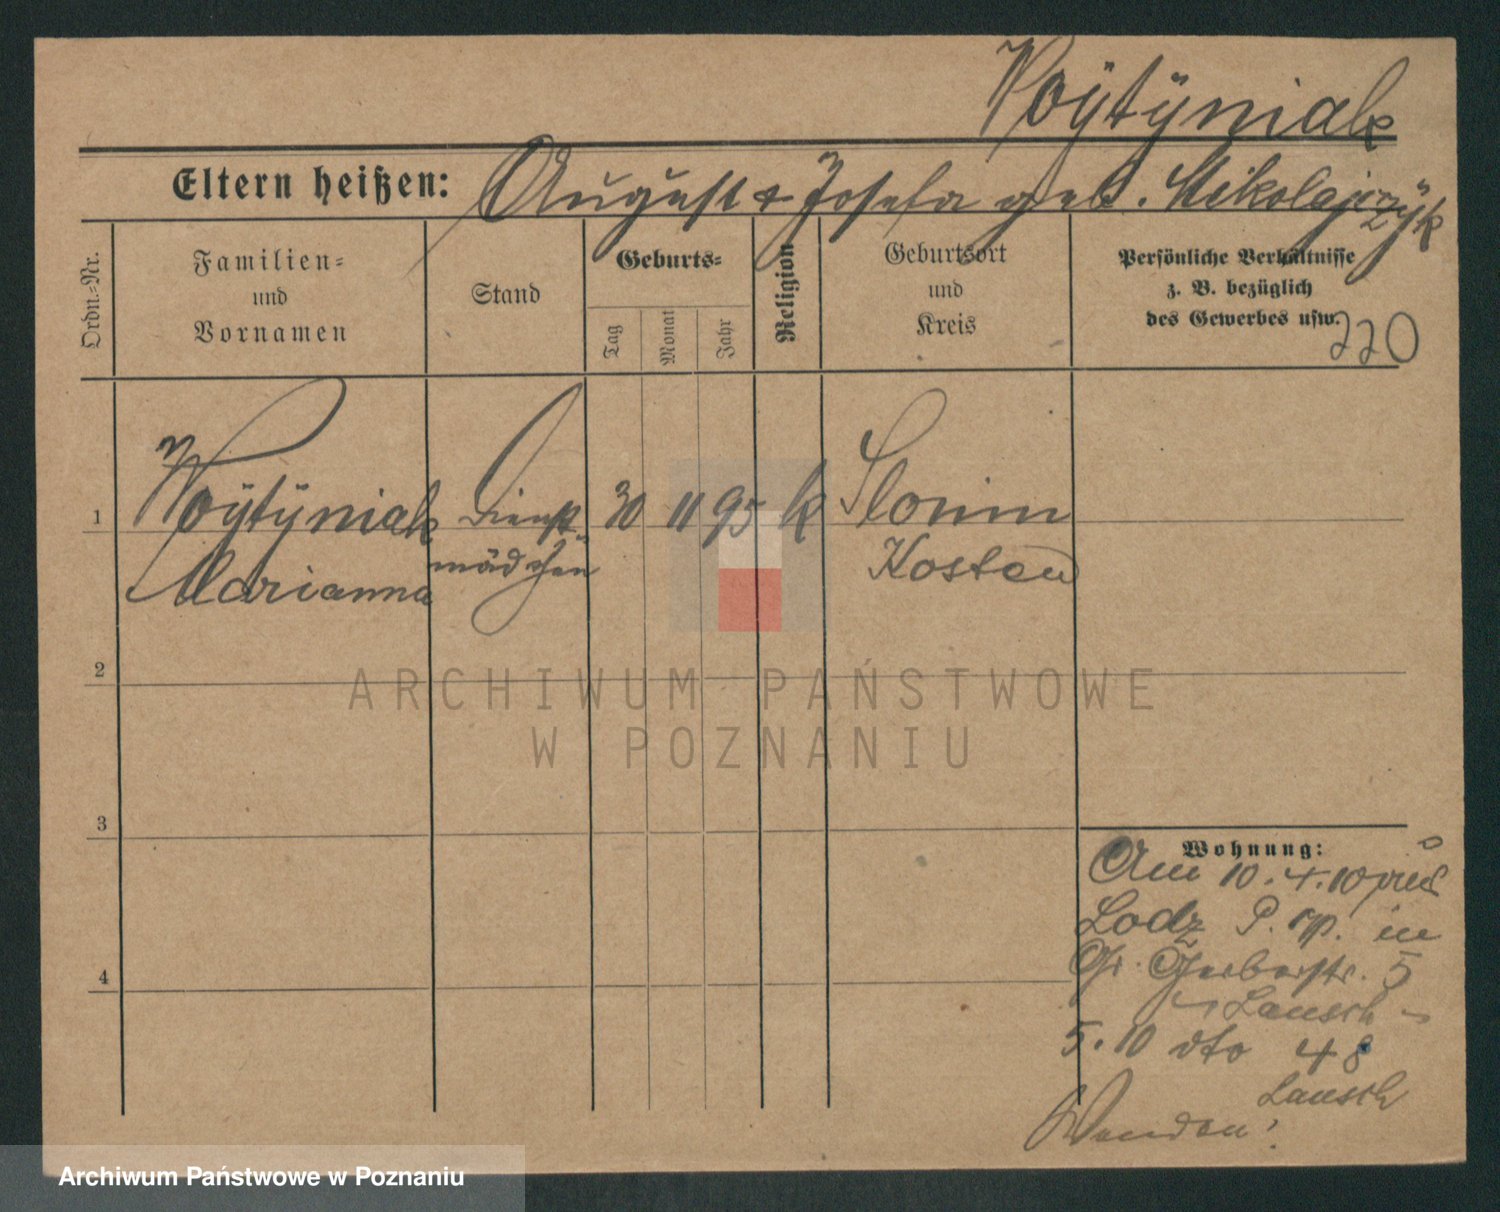 Woÿtÿniak
Eltern heißen: August & Josefa geb. Mikolajczÿk
Ordn.-Nr.
Familien-
und
Vornamen
Stand
Geburts-
Tag
Monat
Jahr
Religion
Geburtsort
und
Kreis
Persönliche Verhältnisse
z. B. bezüglich
des Gewerbes usw.
220
1 Woÿtÿniak Dienst- 30 11 95 k Slonin
Marianna mädchen Kosten
2
3
4
Wohnung:
Am 10.4.10 aus
Lodz P. in
Gr. Gerberstr. 5
Lausch
5.10 dto 48
Lausch
Wenden!
ARCHIWUM PAŃSTWOWE
W POZNANIU
Archiwum Państwowe w Poznaniu